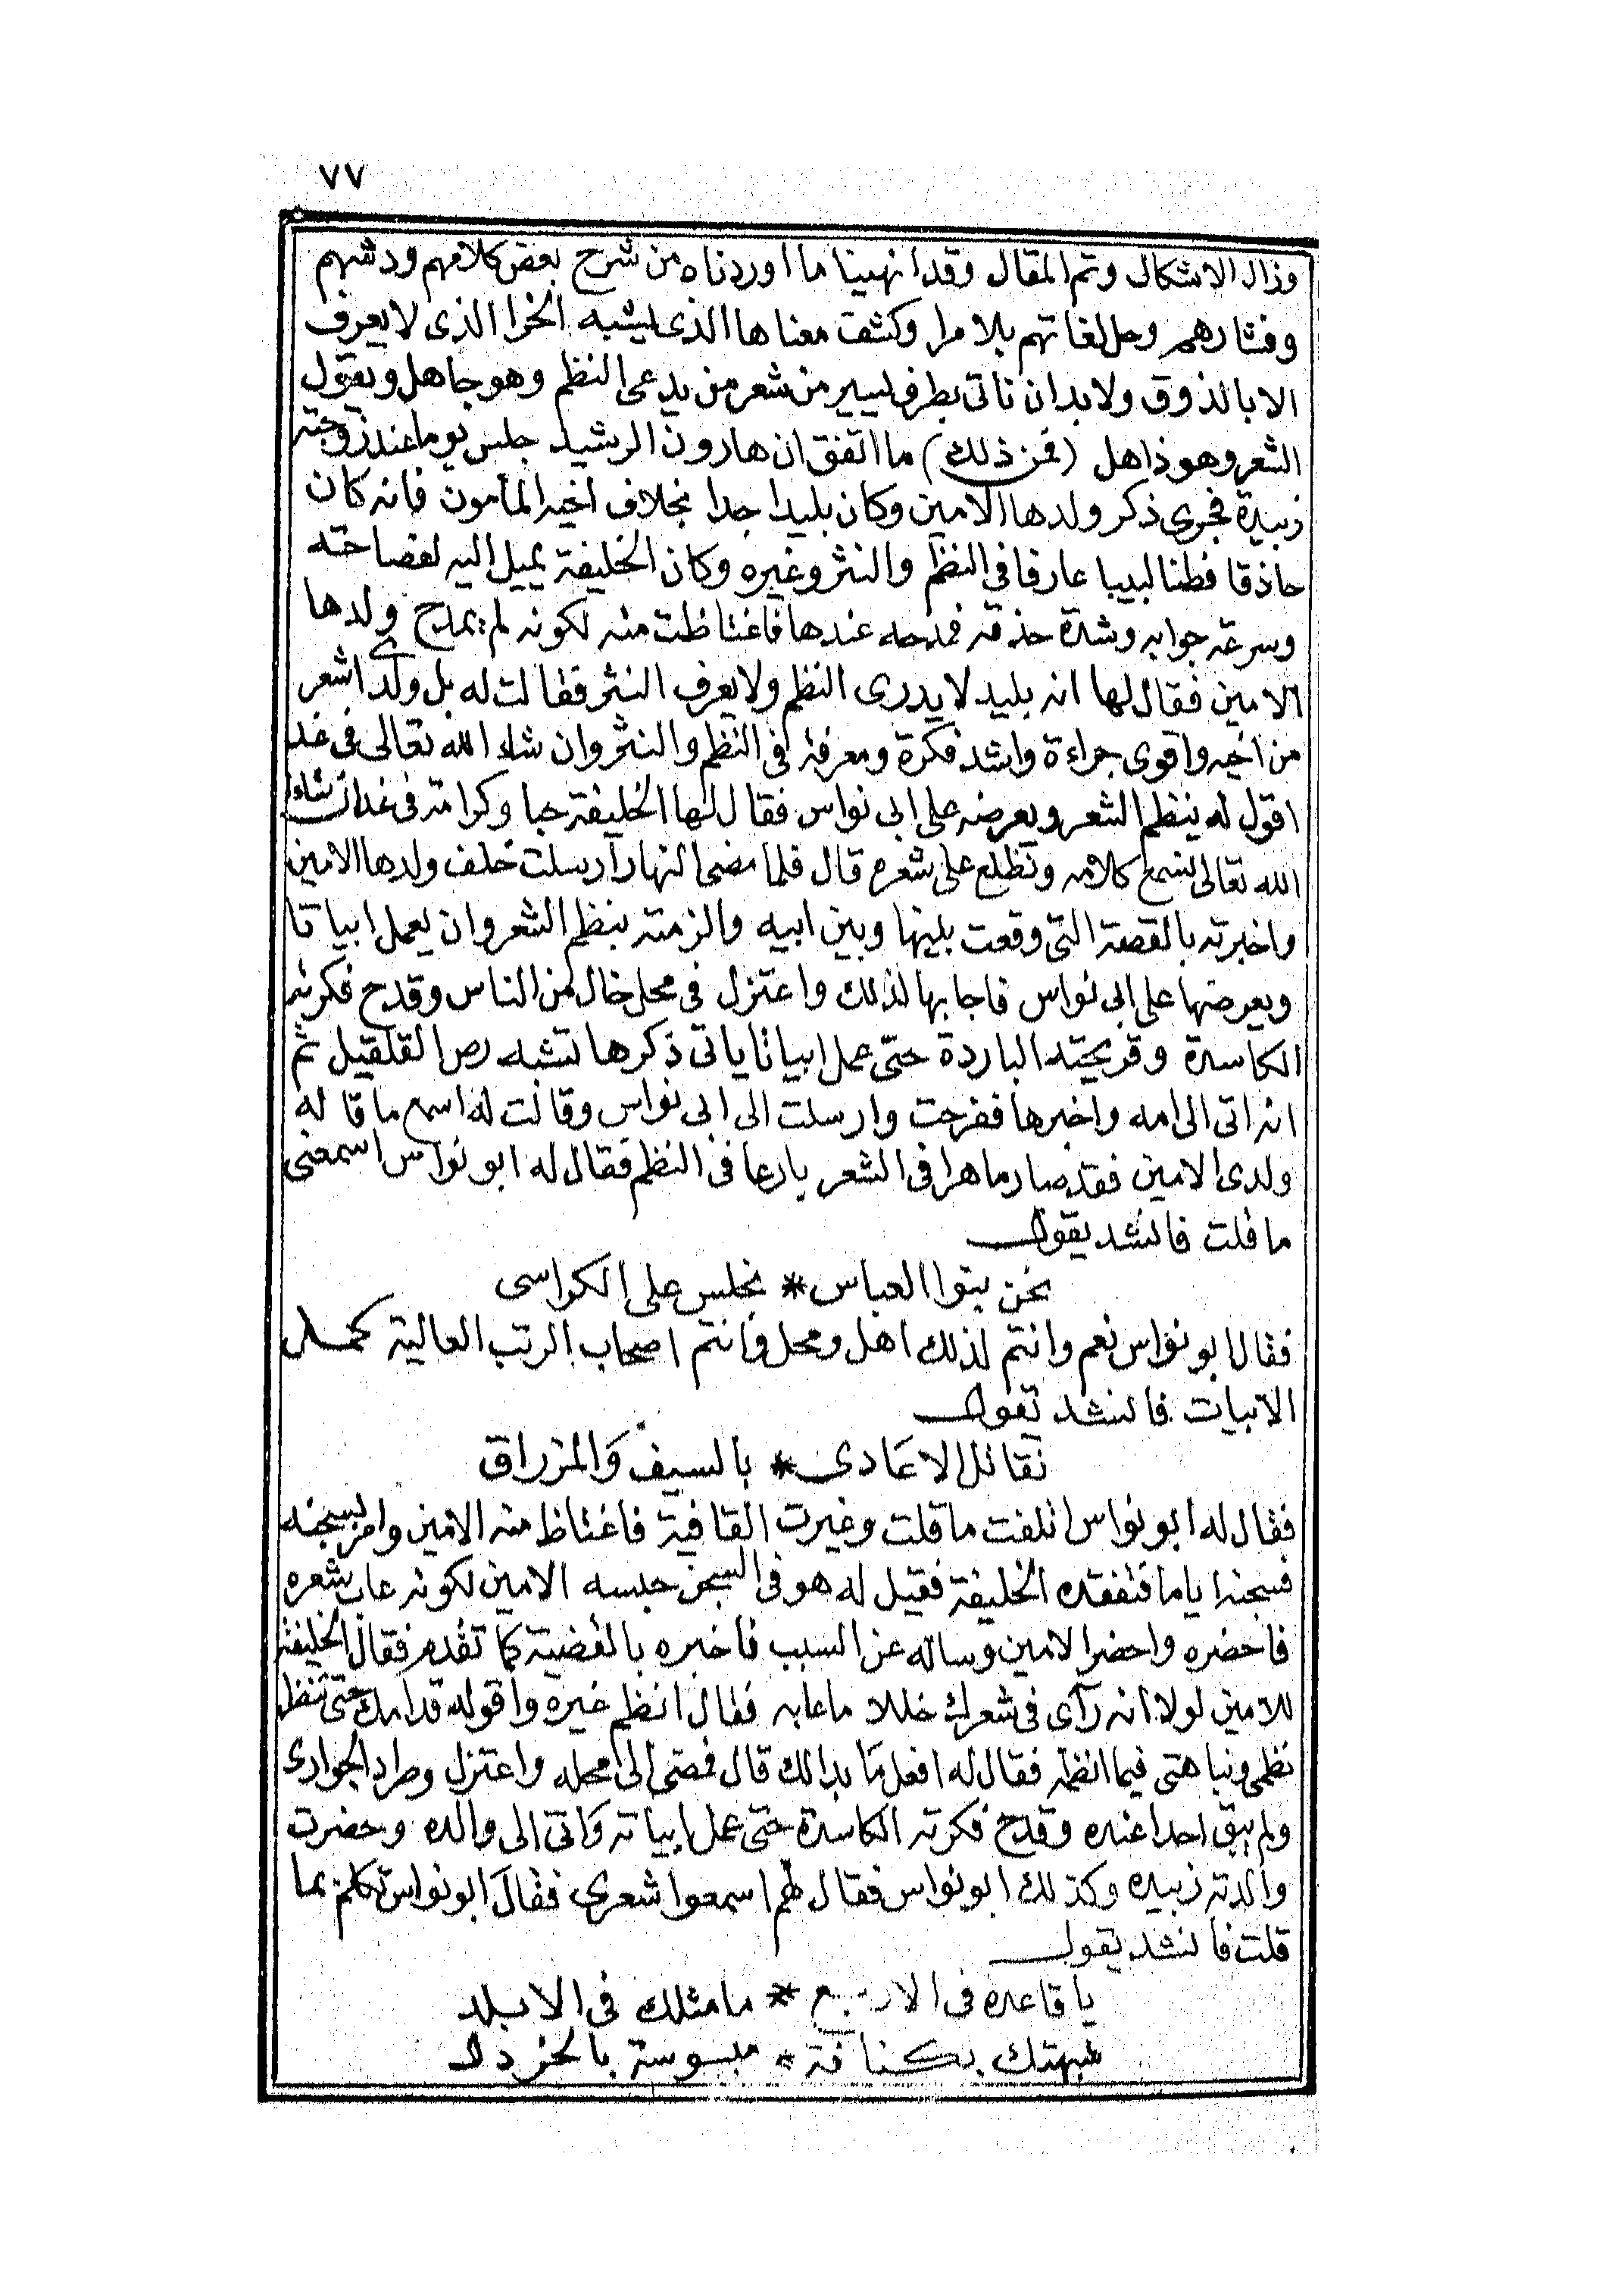 ٧٧
وزال الاشكال وتم المقال وقد انهينا ما اوردناه من شرح بعض كلامهم ودشهم
وفشارهم وحل لغاتهم بلا مرا وكشف معناها الذى يشبه الخرا الذى لا يعرف
الا بالذوق ولا بد ان ناتى بطرف يسير من شعر من يدعى النظم وهو جاهل ويقول
الشعر وهو ذاهل (فمن ذلك) ما اتفق ان هارون الرشيد جلس يوما عند زوجته
زبيدة فجرى ذكر ولدها الامين وكان بليدا جدا بخلاف اخيه المأمون فانه كان
حاذقا فطنا لبيبا عارفا فى النظم والنثر وغيره وكان الخليفة يميل اليه لفصاحته
وسرعة جوابه وشدة حذقه فمدحه عندها فاغتاظت منه لكونه لم يمدح ولدها
الامين فقال لها انه بليد لا يدرى النظم ولا يعرف النثر فقالت له بل ولدى اشعر
من اخيه واقوى جراءة واشد فكرة ومعرفة فى النظم والنثر وان شاء الله تعالى فى غد
اقول له ينظم الشعر ويعرضه على ابى نواس فقال لها الخليفة حبا وكرامة فى غد ان شاء
الله تعالى نسمع كلامه ونطلع على شعره قال فلما مضى النهار ارسلت خلف ولدها الامين
واخبرته بالقصة التى وقعت بينها وبين ابيه والزمته بنظم الشعر وان يعمل ابياتا
ويعرضها على ابى نواس فاجابها لذلك واعتزل فى محل خال من الناس وقدح فكرته
الكاسدة وقريحته الباردة حتى عمل ابياتا ياتى ذكرها تشبه رص القلقيل ثم
انه اتى الى امه واخبرها ففرحت وارسلت الى ابى نواس وقالت له اسمع ما قاله
ولدى الامين فقد صار ماهرا فى الشعر بارعا فى النظم فقال له ابو نواس اسمعنى
ما قلت فانشد يقول
نحن بنوا العباس * نجلس على الكراسى
فقال ابو نواس نعم وانتم لذلك اهل ومحل وانتم اصحاب الرتب العالية كمل
الابيات فانشد يقول
نقاتل الاعادى * بالسيف والمزراق
فقال له ابو نواس اتلفت ما قلت وغيرت القافية فاغتاظ منه الامين وامر بسجنه
فسجنه اياما فتفقده الخليفة فقيل له هو فى السجن حبسه الامين لكونه عاب شعره
فاحضره واحضر الامين وساله عن السبب فاخبره بالقضية كما تقدم فقال الخليفة
للامين لولا انه رآى فى شعرك خللا ما عابه فقال انظم غيره واقوله قدامك حتى تنظر
نظمى ونباهتى فيما انظمه فقال له افعل ما بدالك قال فمضى الى محله واعتزل وطرد الجوارى
ولم يبق احدا عنده وقدح فكرته الكاسدة حتى عمل ابياته واتى الى والده وحضرت
والدته زبيده وكذلك ابو نواس فقال لهم اسمعوا شعرى فقال ابو نواس تكلم بما
قلت فانشد يقول
يا قاعده فى الاربع * ما مثلك فى الابلد
شبهتك بكنافة * مبسوسة بالخردل